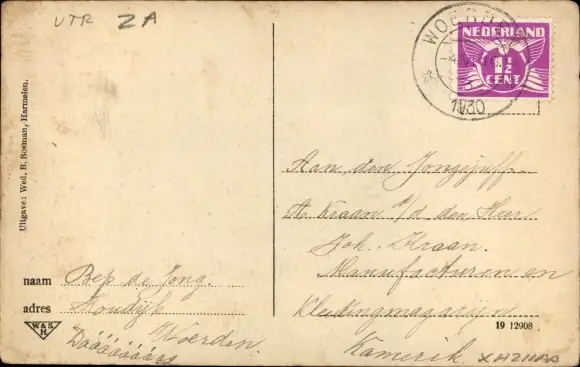 UTR ZA
WOERDEN
1930
NEDERLAND
1½
CENT
Uitgave: Wed. B. Bosman, Harmelen.
naam Bep de Jong
adres Houdijk
Woerden.
W&S
H
Aan den Jongejuffr.
A Kraan p/a den Heer
Joh. Kraan.
Manufacturen en
Kledingmagazijn
19 12908
Kamerik